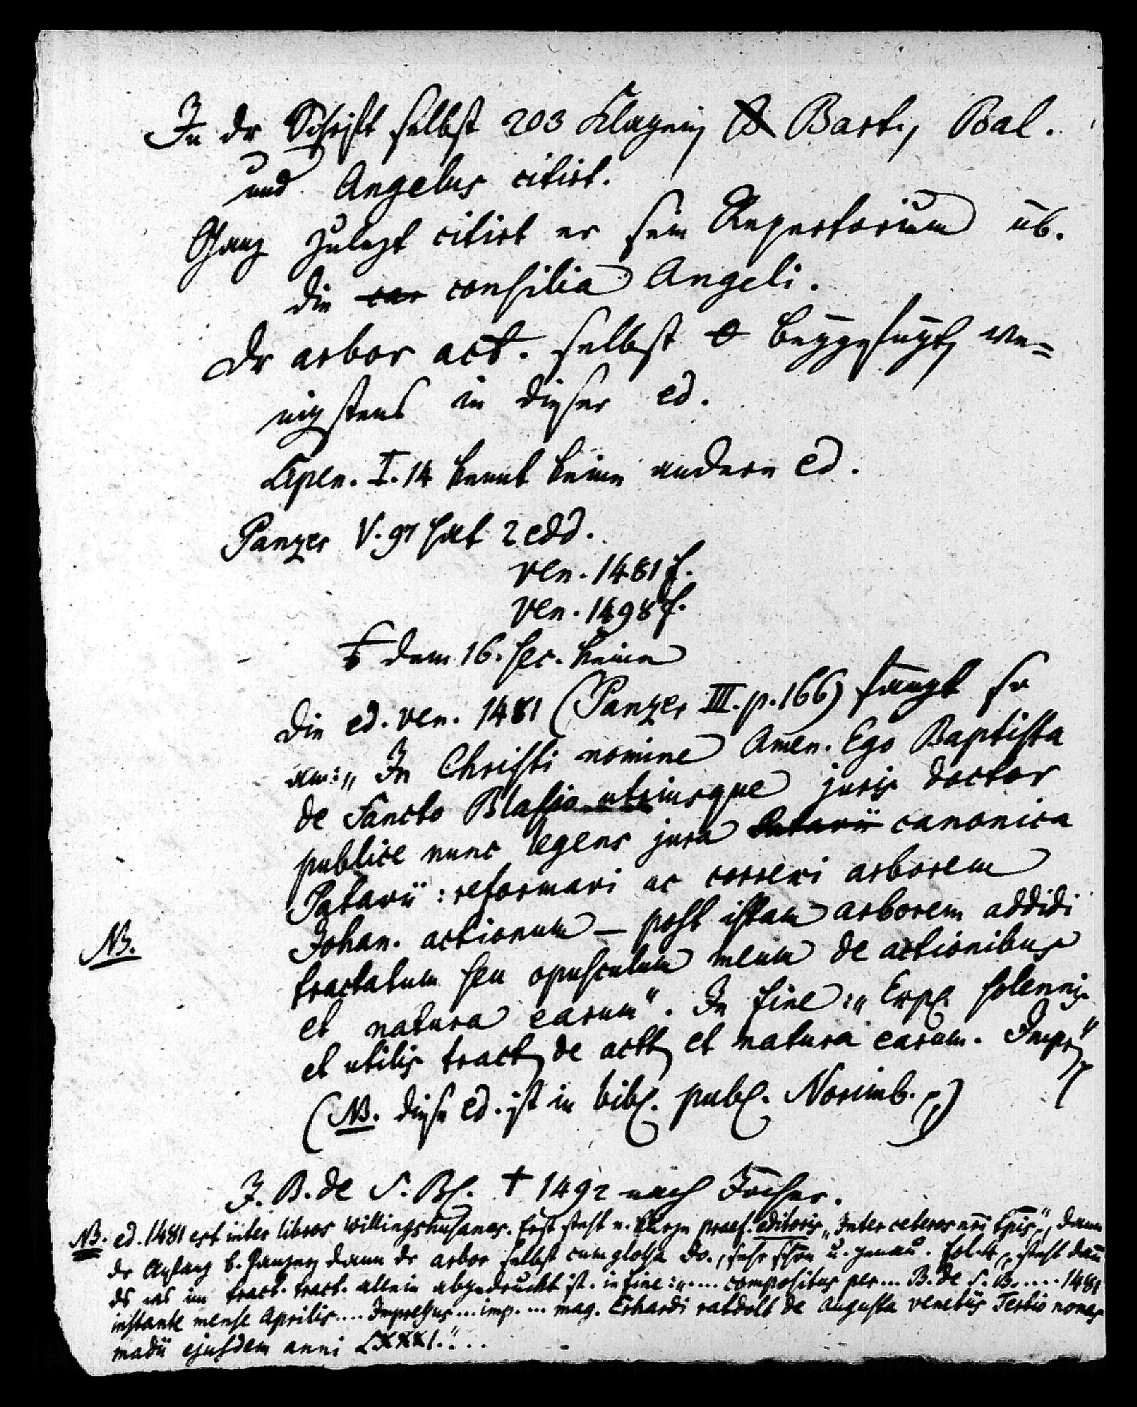 In dr Schrift selbst 203 Klagen, Bart., Bal.
und Angelus citirt.
Ganz zulezt citirt er sein Repertorium üb.
die car consilia Angeli.
Dr arbor act. selbst beygefügt, we=
nigstens in dieser ed.
Lipen. I. 14 kennt keine andere ed.
Panzer V. 97 hat 2 edd.
ven. 1481 f.
ven. 1498 f.
dem 16. sec. keine
Die ed. ven. 1481 (Panzer III. p. 166) fängt so
an: „In Christi nomine Amen. Ego Baptista
de Sancto Blasio utriusque juris doctor
publice nunc legens jura canonica
Patavii: reformavi ac correxi arborem
Johan. actionum — post istam arborem addidi
NB.
tractatum seu opusculum meum de actionibus
et natura earum“. In fine: „Expl. solennis
et utilis tract. de actt. et natura earum. Impr.“
(NB. diese ed. ist in bibl. publ. Norimb.)
J. B. de S. Bl. † 1492 nach Jöcher.
NB. ed. 1481 est inter libros Willingshusanos. Erst steht praef. editoris „Inter ceteros“, dann
dr Anfang b. Panzer, dann dr arbor selbst cum glossa do., sehr schön u. genau. steht dann
ds was im tract. tract. allein abgedruckt ist. in fine: „.... compositus per ... B. de S. B. ..... 1481
instante mense Aprilis .... Impressus ... imp. .... mag. Erhardi ratdolt de augusta venetiis Tertio nonas
madii ejusdem anni LXXXI.“...